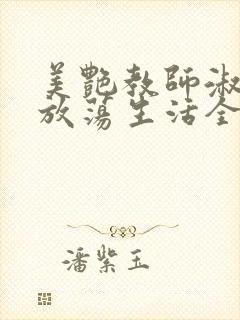 美艷教師淑
放蕩生活全
潘紫玉